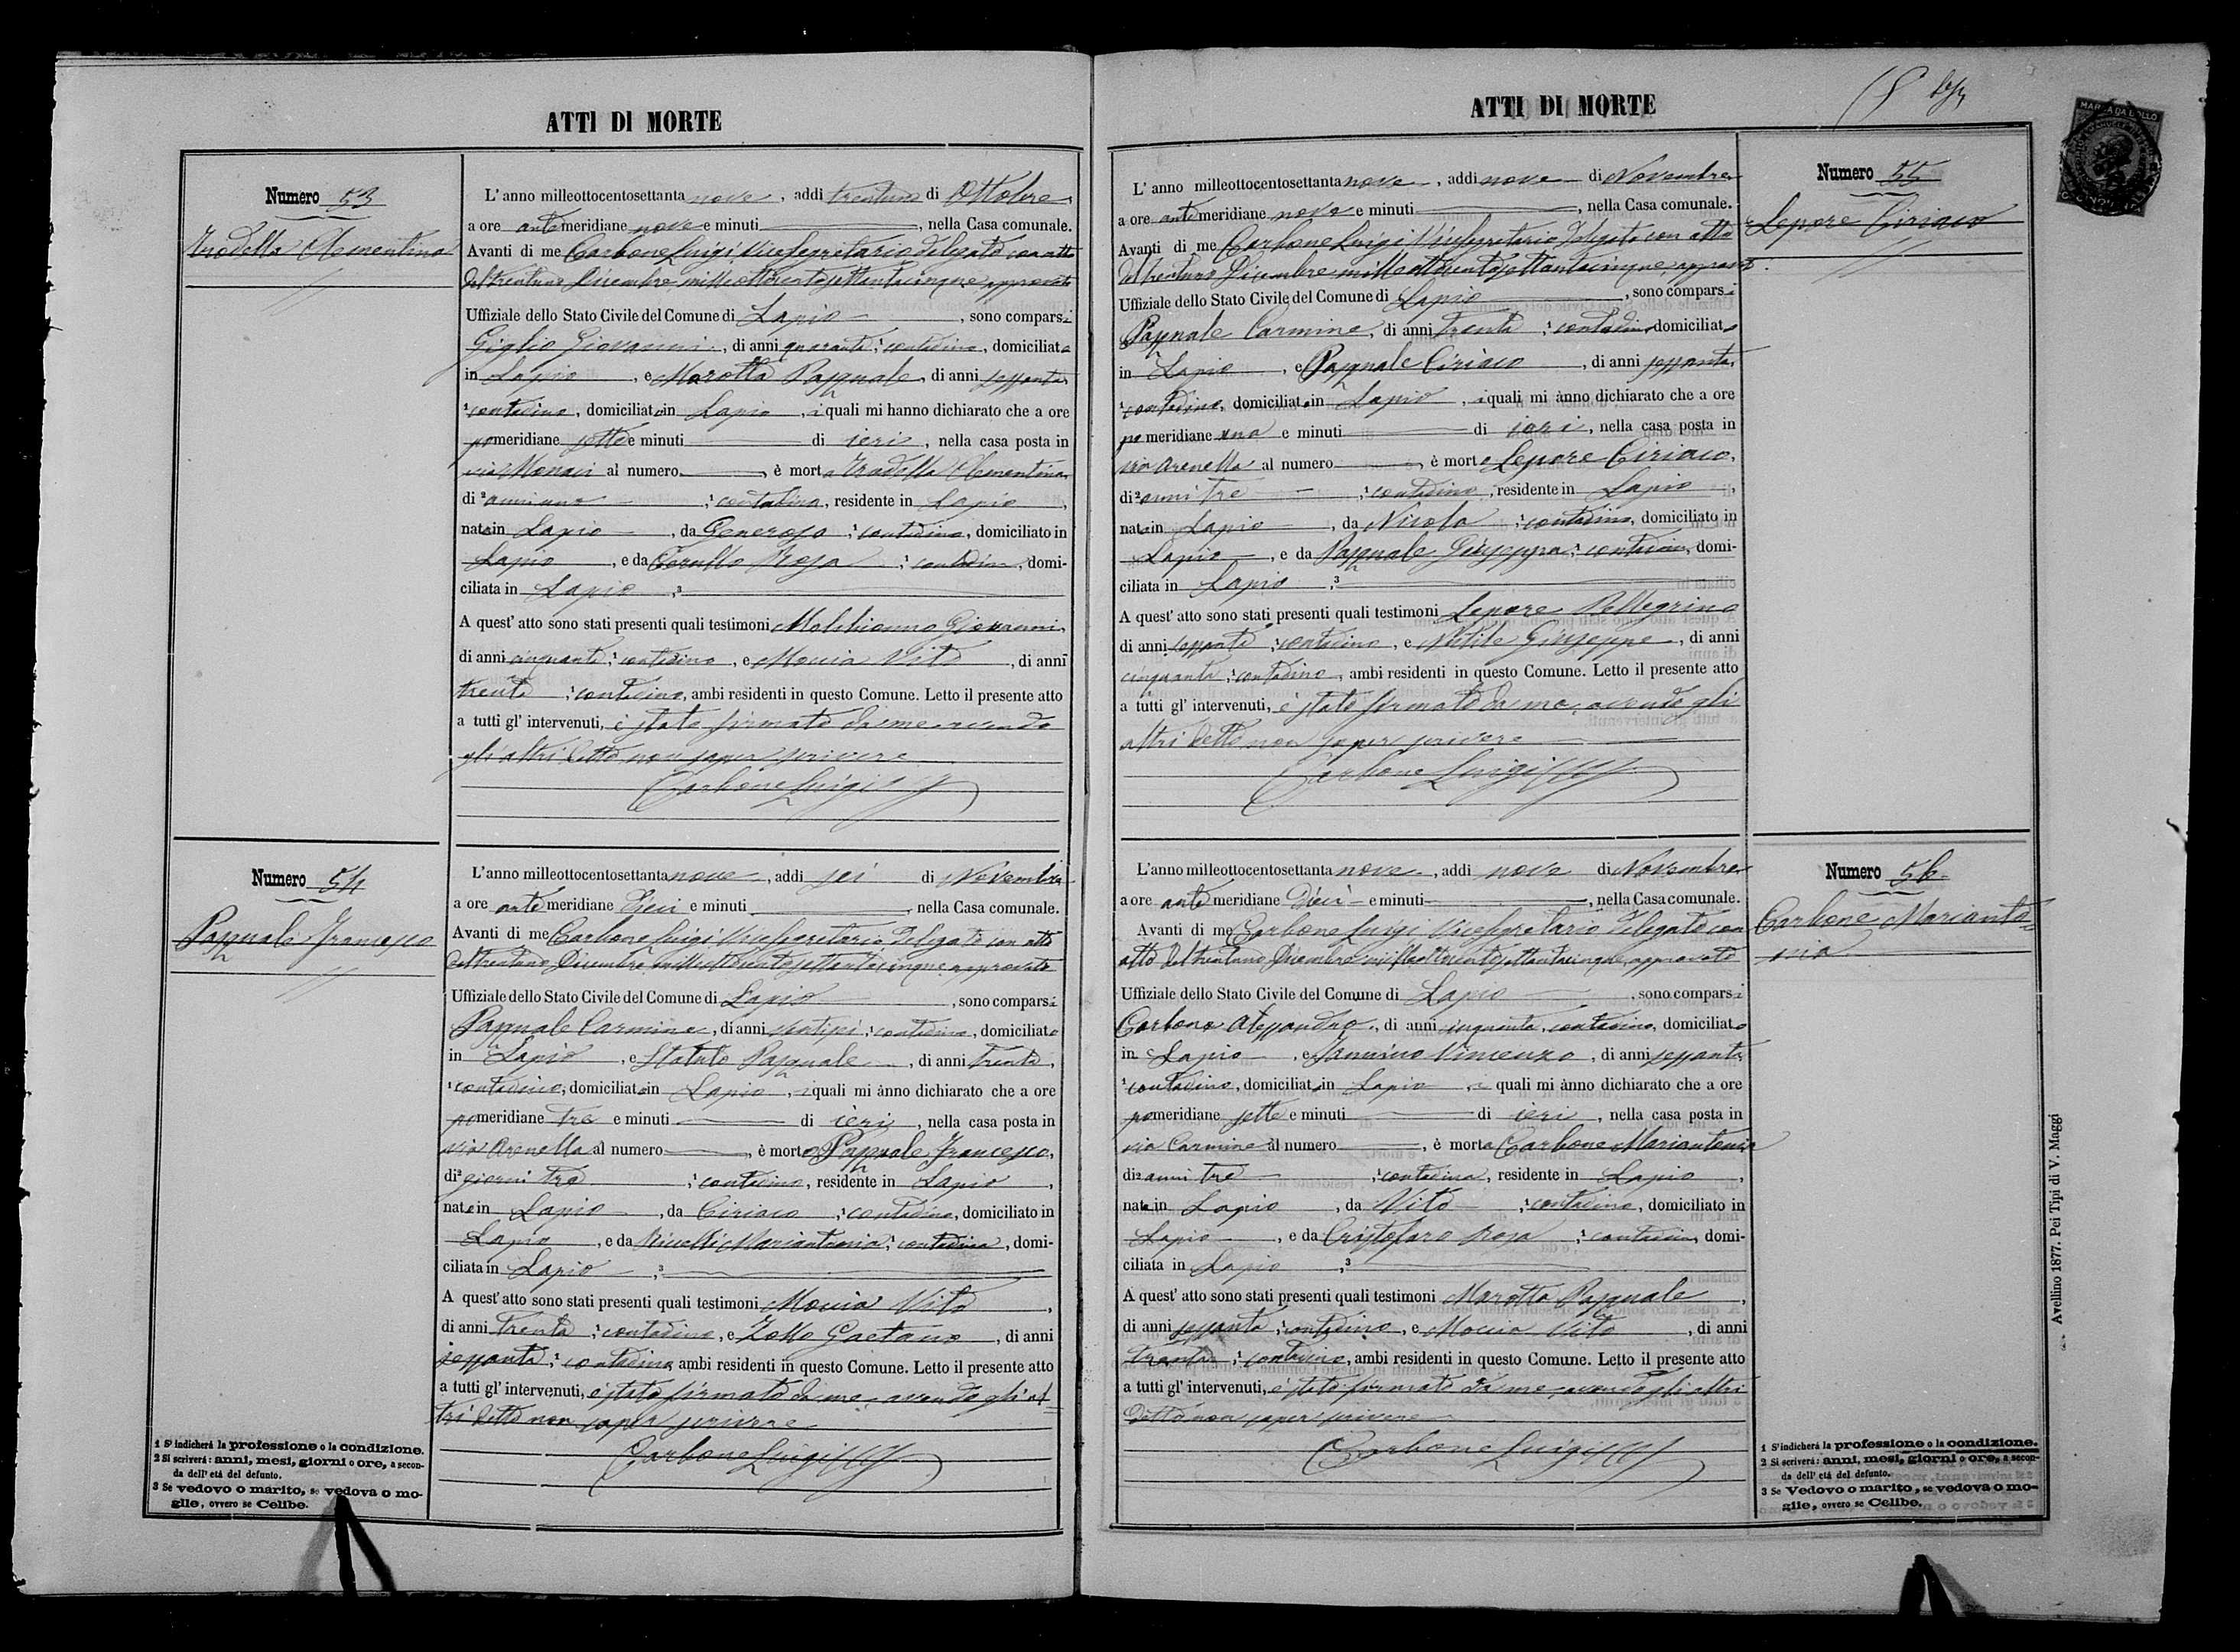 ATTI DI MORTE
Numero 53
Trodella Clementina
L'anno milleottocentosettanta nove, addì trentuno di Ottobre,
a ore antemeridiane nove e minuti, nella Casa comunale.
Avanti di me Carbone Luigi Vicesegretario delegato con atto
del trentuno Dicembre milleottocentosettantacinque approvato
Uffiziale dello Stato Civile del Comune di Lapio, sono comparsi
Giglio Giovanni, di anni quaranta, contadino, domiciliato
in Lapio, e Marotta Pasquale, di anni sessanta,
contadino, domiciliato in Lapio, i quali mi hanno dichiarato che a ore
pomeridiane sette e minuti di ieri, nella casa posta in
via Monaci al numero, è morta Trodella Clementina
di anni uno, contadina, residente in Lapio,
nata in Lapio, da Generoso, contadino, domiciliato in
Lapio, e da Carullo Rosa, contadina, domi-
ciliata in Lapio,
A quest'atto sono stati presenti quali testimoni Melchionno Giovanni
di anni cinquanta, contadino, e Moccia Vito, di anni
trenta, contadino, ambi residenti in questo Comune. Letto il presente atto
a tutti gl'intervenuti, è stato firmato da me avendo
gli altri detto non saper scrivere
Carbone Luigi
Numero 54
Pasquale Francesco
L'anno milleottocentosettanta nove, addì sei di Novembre
a ore antemeridiane dieci e minuti nella Casa comunale.
Avanti di me Carbone Luigi Vicesegretario delegato con atto
del trentuno Dicembre milleottocentosettantacinque approvato
Uffiziale dello Stato Civile del Comune di Lapio, sono comparsi
Pasquale Carmine, di anni ventisei, contadino, domiciliato
in Lapio, e Statuto Pasquale, di anni trenta,
contadino, domiciliato in Lapio, i quali mi ànno dichiarato che a ore
pomeridiane tre e minuti di ieri, nella casa posta in
via Arenella al numero, è morto Pasquale Francesco,
di giorni tre, contadino, residente in Lapio,
nato in Lapio, da Ciriaco, contadino, domiciliato in
Lapio, e da Mariantonia, contadina, domi-
ciliata in Lapio,
A quest'atto sono stati presenti quali testimoni Moccia Vito,
di anni trenta, contadino, e Zollo Gaetano, di anni
sessanta, contadino, ambi residenti in questo Comune. Letto il presente atto
a tutti gl'intervenuti, è stato firmato da me avendo gli al=
tri detto non saper scrivere
Carbone Luigi
1 S'indicherà la professione o la condizione.
2 Si scriverà: anni, mesi, giorni o ore, a secon-
da dell'età del defunto.
3 Se vedovo o marito, se vedova o mo-
glie, ovvero se Celibe.
ATTI DI MORTE
MARCA DA BOLLO
Numero 55
Lepore Ciriaco
L'anno milleottocentosettanta nove, addì nove di Novembre
a ore antemeridiane nove e minuti, nella Casa comunale.
Avanti di me Carbone Luigi Vicesegretario delegato con atto
del trentuno Dicembre milleottocentosettantacinque, approvato
Uffiziale dello Stato Civile del Comune di Lapio, sono comparsi
Pasquale Carmine, di anni trenta, contadino domiciliato
in Lapio, e Pasquale Ciriaco, di anni sessanta,
contadino, domiciliato in Lapio, i quali mi ànno dichiarato che a ore
pomeridiane una e minuti di ieri, nella casa posta in
via Arenella al numero, è morto Lepore Ciriaco,
di anni tre, contadino, residente in Lapio,
nato in Lapio, da Nicola, contadino, domiciliato in
Lapio, e da Pasquale Giuseppa, contadina, domi-
ciliata in Lapio,
A quest'atto sono stati presenti quali testimoni Lepore Pellegrino
di anni sessanta, contadino, e Giuseppe, di anni
cinquanta, contadino, ambi residenti in questo Comune. Letto il presente atto
a tutti gl'intervenuti, è stato firmato da me, avendo gli
altri detto non saper scrivere
Carbone Luigi
Numero 56
Carbone Marianto=
nia
L'anno milleottocentosettanta nove, addì nove di Novembre
a ore antemeridiane dieci e minuti, nella Casa comunale.
Avanti di me Carbone Luigi Vicesegretario delegato con
atto del trentuno Dicembre milleottocentosettantacinque, approvato
Uffiziale dello Stato Civile del Comune di Lapio, sono comparsi
Carbone Alessandro, di anni cinquanta, contadino, domiciliato
in Lapio, e Iannino Vincenzo, di anni sessanta
contadino, domiciliato in Lapio, i quali mi ànno dichiarato che a ore
pomeridiane sette e minuti di ieri, nella casa posta in
via Carmine al numero, è morta Carbone Mariantonia
di anni tre, contadina, residente in Lapio,
nata in Lapio, da Vito, contadino, domiciliato in
Lapio, e da Cristofaro Rosa, contadina, domi-
ciliata in Lapio,
A quest'atto sono stati presenti quali testimoni Marotta Pasquale,
di anni sessanta, contadino, e Moccia Vito, di anni
trenta, contadino, ambi residenti in questo Comune. Letto il presente atto
a tutti gl'intervenuti, è stato firmato da me avendo gli altri
detto non saper scrivere
Carbone Luigi
1 S'indicherà la professione o la condizione.
2 Si scriverà: anni, mesi, giorni o ore, a secon-
da dell'età del defunto.
3 Se Vedovo o marito, se vedova o mo-
glie, ovvero se Celibe.
Avellino 1877. Pei Tipi di V. Maggi